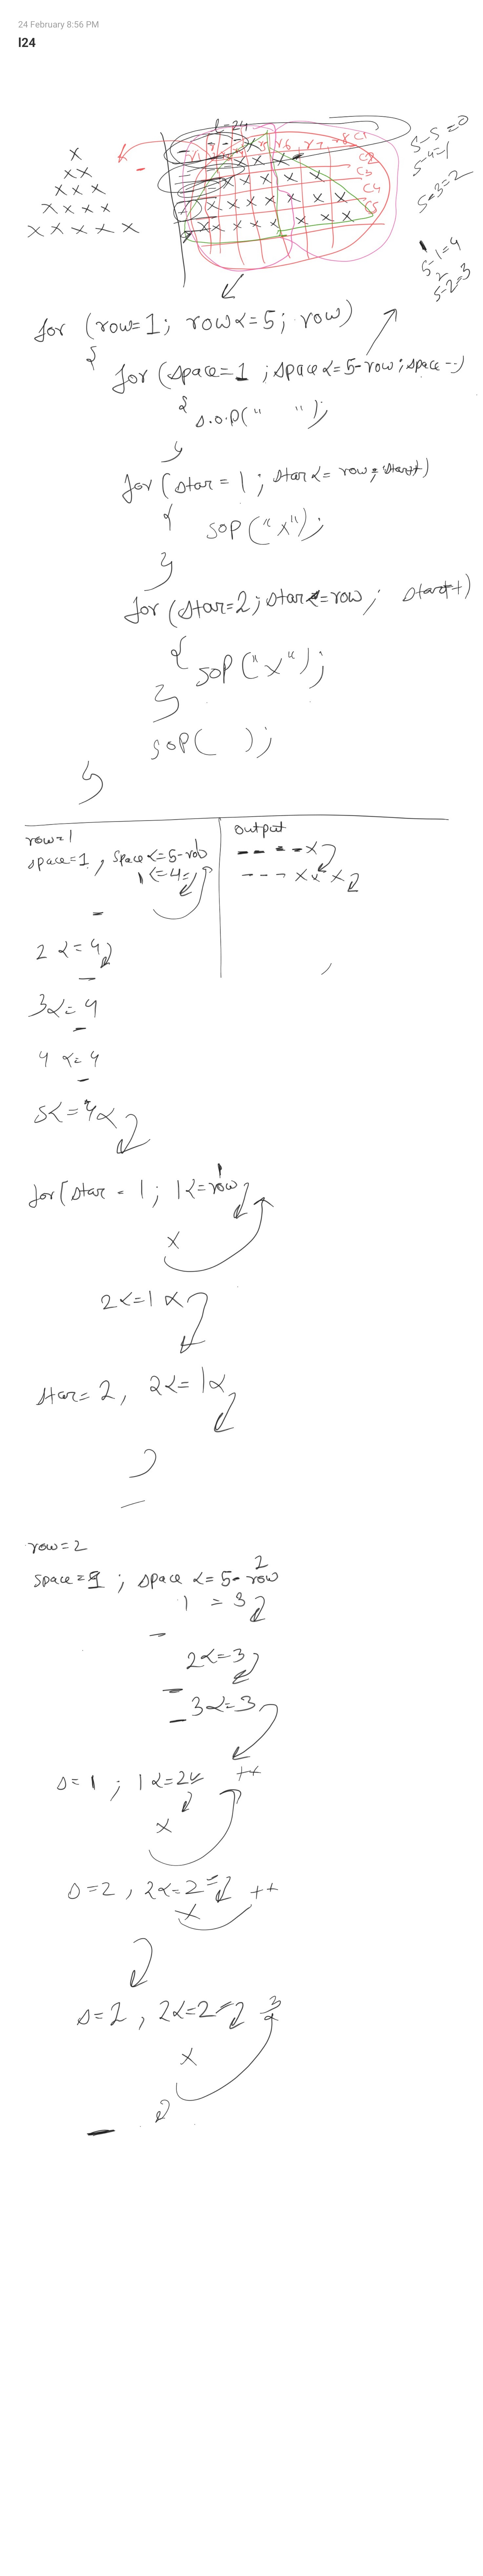 24 February 8:56 PM
l24
l=24
x
x x
x x x
x x x x
x x x x x
C1
C2
C3
C4
C5
5-5=0
5-4=1
5-3=2
5-1=4
5-2=3
for (row=1; row<=5; row)
{
for (space=1 ; space<=5-row; space--)
{
s.o.p(" ");
}
for (star=1; star<=row; star++)
{
sop("x");
}
for (star=2; star<=row; start+)
{
sop("x");
}
sop( );
}
row=1
space=1, space<=5-row
1<=4
2<=4
3<=4
4<=4
5<=4x
output
- - - - x
- - - x x x
for(star=1; 1<=row
x
2<=1x
star=2, 2<=1x
row=2
space=1; space<=5-row
2
1 = 3
2<=3
3<=3
s=1; 1<=2 ++
x
s=2, 2<=2 ++
x
s=2, 2<=2
x